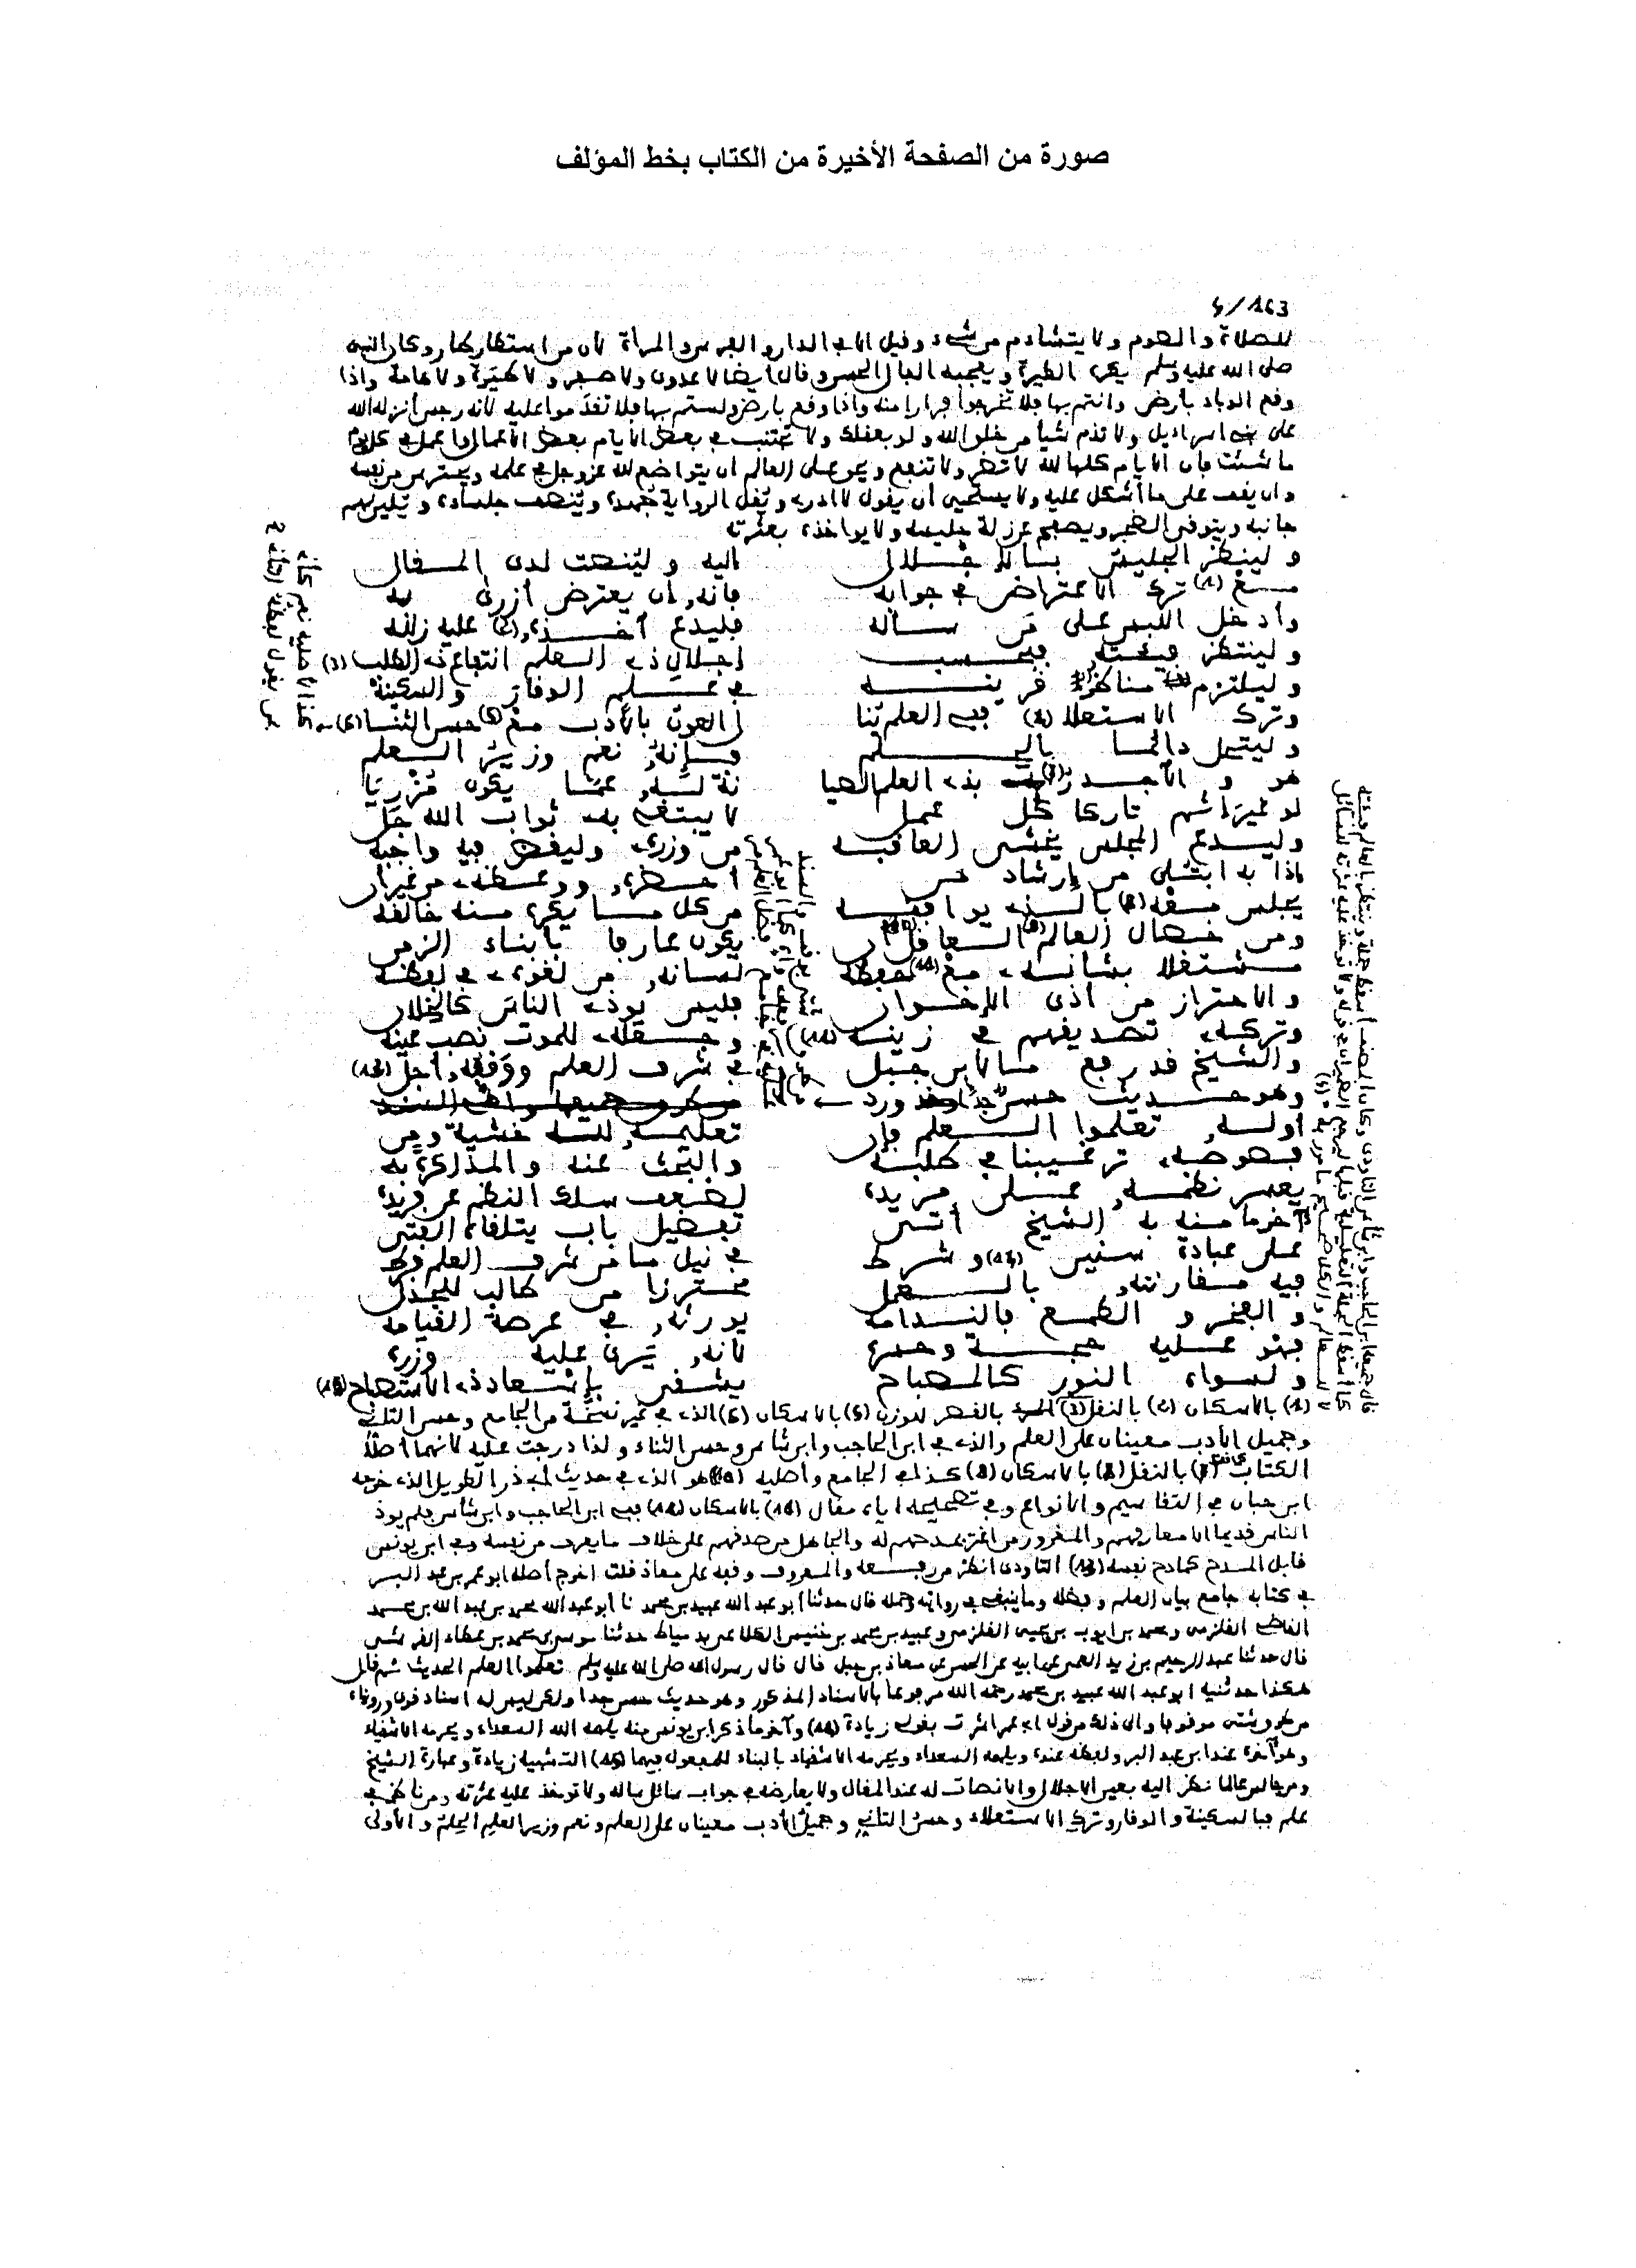 صورة من الصفحة الأخيرة من الكتاب بخط المؤلف
4/163
للصلاة والصوم ولا يتشاءم من شيء وقيل إلا في الدار والفرس والمرأة لأن من استطار بكفار وكان النبي
صلى الله عليه وسلم يكره الطيرة ويعجبه الفال الحسن وقال أيضا لا عدوى ولا صفر ولا طيرة ولا هامة وإذا
وقع الوباء بأرض وأنتم بها فلا تخرجوا فرارا منه وإذا وقع بأرض ولستم بها فلا تقدموا عليه لأنه رجس أنزله الله
على بني إسراءيل ولا تذم شيأ من خلق الله ولو بعقلك ولا تجتنب في بعض الأيام بعض الأعمال واعمل في كل يوم
ما شئت فإن الأيام كلها لله لا تضر ولا تنفع وحق على العالم أن يتواضع لله عز وجل في علمه ويحترس من نفسه
وأن يقف على ما أشكل عليه ولا يستحيي أن يقول لا أدري ويقل الرواية جهده وينصف جلساءه ويلين لهم
جانبه ويتوقى الضجر ويصفح عن زلة جليسه ولا يواخذه بعثرته
ولينظر الجليس بالإجلال إليه ولينصت لدى المقال
مع (1) ترك الاعتراض في جوابه فإنه إن يعترض أزرى به
وأدخل اللبس على من سأله فليدع أخذه (2) عليه زلله
ولينتظر فيئته فبحسب إجلال ذي العلم انتفاع ذي الطلب (3)
وليلتزم مناظر قرينه في علم الوقار والسكينة
وترك الاستعلا (4) ففي العلم تنا ل العون بالأدب مع (5) حسن الثنا (6)
وليتحل دائما بالحلم فإنه نعم وزير العلم
هو والأجدر (7) بذي العلم الصيا نة له عما يكون مزريا
لو غيرَ إثم تاركا كل عمل لا يبتغي به ثواب الله جل
وليدع المجلس يخشى العاقبه من وزره وليقض فيه واجبه
إذا به ابتلي من إرشاد من أحضره ووعظه من غير أن
يجلس معه (8) بالذي يوافقه من كل ما يكره منه خالقه
ومن خصال العالم (9) العاقل (10) أن يكون عارفا بأبناء الزمن
مشتغلا بشانه مع (11) حفظه لسانه من لغوه في لفظه
والاحتراز من أذى الإخوان فليس يوذي الناس كالخلان
وتركه تصديقهم في زينه (12) وجعله للموت نصب عينه
والشيخ قد رفع ما لابن جبل في شرف العلم ووقفه أجل (13)
وهو حديث حسن جدا ورد
أوله تعلموا العلم فإن تعليمه لله خشية ومن
فهوصه ترغيبنا في طلبه والبحث عنه والمذاكره به
يعسر نظمه على مريده لضعف سلك النظم عن فريده
آخر ما منه به الشيخ أتى تفضيل باب يتلقاه الفتى
على عبادة سنين (14) وشرط في نيل ما من شرف العلم فرط
فيه مقارنته بالعمل محترزا من طالب للجدل
والفخر والطمع بالندامه يورثه في عرصة القيامه
فهو عليه حجة وحده لأنه يرى عليه وزره
ولسواه النور كالمصباح يشقى بإسعاد ذي الاستصباح (15)
(1) بالإسكان (2) بالنقل (3) بالقصر للوزن (5) بالإسكان (6) الذي في غير نسخة من الجامع وحسن التاني
وجميل الأدب معينان على العلم والذي في ابن الحاجب وابن شاس وحسن الثناء ولذا درجت عليه لأنهما أصل
الكتاب (7) بالنقل (8) بالإسكان (9) كذا في الجامع وأصليه (10) هو الذي في حديث أبي ذر الطويل الذي خرجه
ابن حبان في التقاسيم والأنواع وفي تصحيحه إياه مقال (11) بالإسكان (12) ففي ابن الحاجب وابن شاس فلم يوذ
الناس قديما إلا معارفهم والمغرور من اغتر بمدحهم له والجاهل من صدقهم على خلاف ما يعرف من نفسه وفي ابن يونس
قابل المدح كمادح نفسه (13) التاودي انظر من رفعه والمعروف وقفه على معاذ قلت أخرج أصله أبو عمر بن عبد البر
في كتابه جامع بيان العلم وفضله وما ينبغي في روايته وحمله قال حدثنا أبو عبد الله عبيد بن محمد نا أبو عبد الله محمد بن عبد الله بن محمد
القاضي القلزمي ومحمد بن أيوب بن يحيى القلزمي وعبيد بن محمد بن خنيس الكلاعي بدمياط حدثنا موسى بن محمد بن عطاء القرشي
قال حدثنا عبد الرحيم بن زيد العمي عن أبيه عن الحسن عن معاذ بن جبل قال قال رسول الله صلى الله عليه وسلم تعلموا العلم الحديث ثم قال
هكذا حدثنيه أبو عبد الله عبيد بن محمد رحمه الله مرفوعا بالإسناد المذكور وهو حديث حسن جدا ولكن ليس له إسناد قوي ورويناه
من طرق شتى موقوفا وإلى ذلك من قول أبي عمر أشرت بقولي زيادة (14) وآخر ما ذكر ابن يونس منه يلهمه الله السعداء ويحرمه الأشقياء
وهو آخره عند ابن عبد البر ولفظه عنده ويلهمه السعداء ويحرمه الأشقياء بالبناء للمفعول فيهما (15) التشبيه زيادة وعبارة الشيخ
ومن جالس عالما نظر إليه بعين الإجلال والإنصات له عند المقال ولا يعارضه في جواب سائل سأله ولا توخذ عليه عثرته ومن ناظر في
علم فبالسكينة والوقار وترك الاستعلاء وحسن التاني وجميل الأدب معينان على العلم ونعم وزير العلم الحلم والأولى